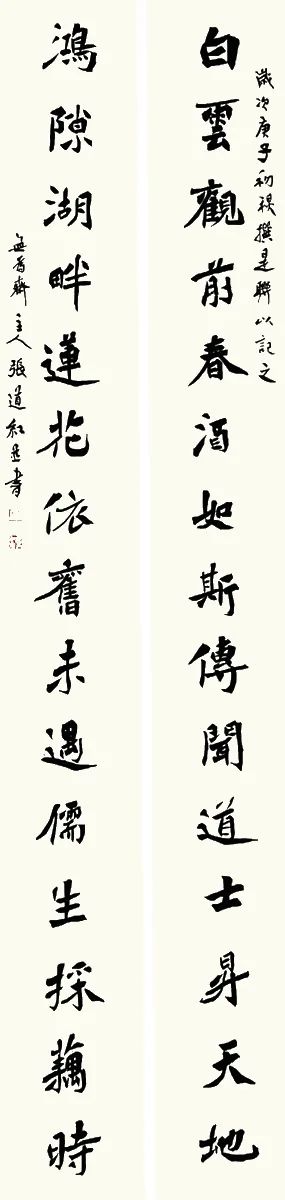 白雲觀前春酒如斯傳聞道士昇天地
歲次庚子初撰是聯以記之
鴻隙湖畔蓮花依舊未遇儒生採藕時
無齋主人張道紅並書